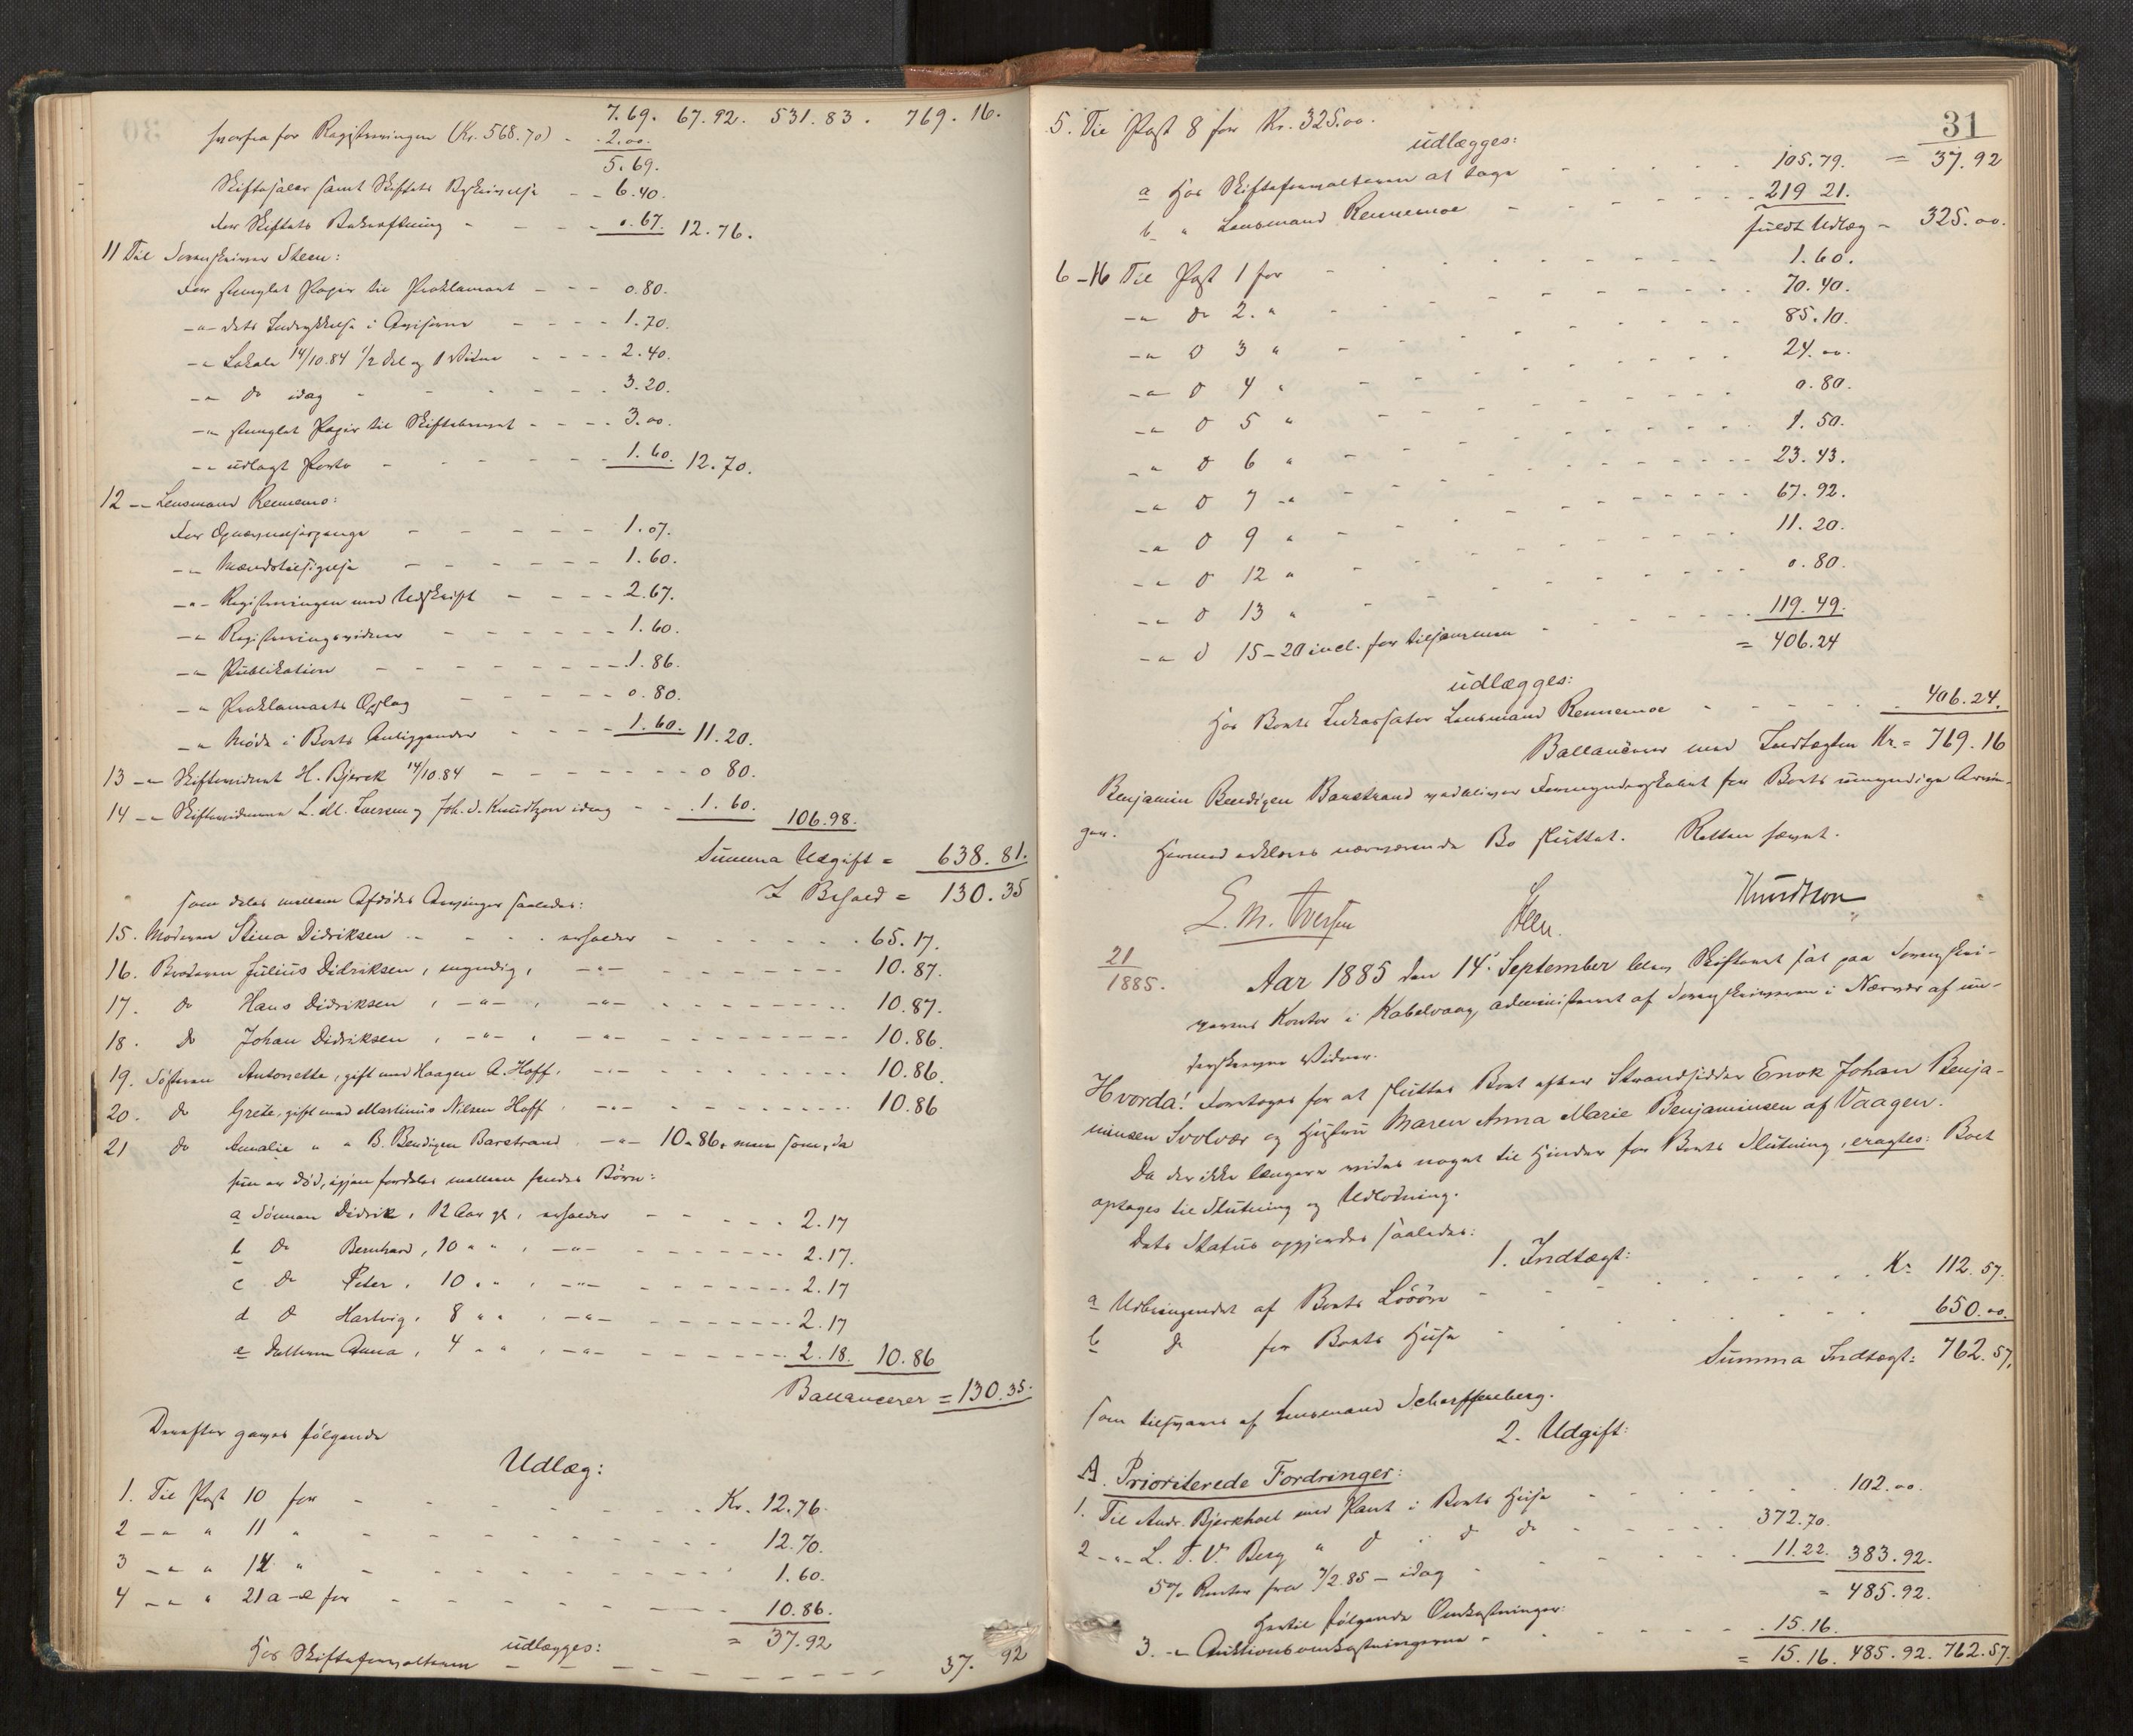 7.69. 67.92. 531.83. 769.16.
hvorfra for Registreringen (Kr. 568.70) - 2.00.
5.69.
Skiftesalær samt Skiftets Beskrivelse - - 6.40.
For Skiftets Bekræftning - - - 0.67. 12.76.
11 Til Sorenskriver Steen:
For stemplet Papir til Proklamaet - - - 0.80.
-"- dets Indrykkelse i Aviserne - - - - 1.70.
-"- Lokale 14/10.84 1/2 Del og 1 Vidne - - - - 2.40.
-"- do idag - - - - - 3.20.
-"- stemplet Papir til Skiftebrevet - - - - 3.00.
-"- udlagt Porto - - - - - 1.60. 12.70.
12 -"- Lensmand Rennemo:
For Opnævnelsespenge - - - - - 1.07.
-"- Mændstilsigelse - - - - - - 1.60.
-"- Registreringen med Udskrift - - - - 2.67.
-"- Registreringsvidner - - - - - - 1.60.
-"- Publikation - - - - - - - 1.86.
-"- Proklamaets Opslag - - - - - 0.80.
-"- Møde i Boets Anliggender - - - - 1.60. 11.20.
13 -"- Skiftevidnet H. Bjerck 14/10.84 - - - - - - - 0 80.
14 -"- Skiftevidnerne L. M. Iversen og Joh. J. Knudtzon idag - - 1.60. 106.98.
Summa Udgift = 638.81.
I Behold = 130.35
som deles mellem Afdødes Arvinger saaledes:
15. Moderen Stina Didriksen - - - - erholder - - - - - - - 65.17.
16. Broderen Julius Didriksen, myndig, -"- - - - - - - - 10.87.
17. do Hans Didriksen , -"- , -"- - - - - - - - - 10.87.
18. do Johan Didriksen , -"- , -"- - - - - - - - - 10.86.
19. Søsteren Antonette, gift med Haagen A. Hoff, -"- - - - - - - - 10.86.
20. do Grete, gift med Martinus Nilsen Hoff , -"- - - - - - - - 10.86
21 do Amalie " " B. Bendigen Barstrand , -"- 10.86, men som, da
hun er død, igjen fordeles mellem hendes Børn:
a Sønnen Didrik, 12 Aar gl, erholder - - - - - 2.17
b do Bernhard, 10 " " , -"- - - - - - - - 2.17.
c do Peter, 10 " " , -"- - - - - - - - 2.17
d do Hartvig, 8 " " , -"- - - - - - - - 2.17
e Datteren Anna, 4 " " , -"- - - - - - - - 2.18. 10.86
Ballancerer = 130.35.
Derefter gaves følgende
Udlæg:
1. Til Post 10 for - - - - - - Kr. 12.76.
2 -"- " 11 " - - - - - - - 12.70.
3 -"- " 14 " - - - - - - - 1.60.
4 -"- " 21 a-e for - - - - - - - 10.86.
= 37.92
udlægges:
Hos Skifteforvalteren - - - - - - - - - - 37. 92
31
5. Til Post 8 for Kr. 325.00.
udlægges:
a Hos Skifteforvalteren at tage - - - - - 105.79. = 37.92
b " Lensmand Rennemoe - - - - - - 219 21.
fuldt Udlæg - 325.00.
6-16 Til Post 1 for - - - - - - - - - 1.60.
-"- do 2. " - - - - - - - - 70.40.
-"- do 3 " - - - - - - - - 85.10.
-"- do 4 " - - - - - - - - 24.00.
-"- do 5 " - - - - - - - - 0.80.
-"- do 6 " - - - - - - - - 1.50.
-"- do 7 -" - - - - - - - - 23.43.
-"- do 9 " - - - - - - - - 67.92.
-"- do 12 " - - - - - - - - 11.20.
-"- do 13 " - - - - - - - - 0.80.
-"- d 15-20 incl. for tilsammen - - - - - - 119.49.
= 406.24
udlægges:
Hos Boets Inkassator Lensmand Rennemoe - - - - - - 406.24.
Ballancerer med Indtægten Kr. = 769.16
Benjamin Bendigen Barstrand vedbliver Formynderskabet for Boets umyndige Arvin-
ger.
Hermed erklæres nærværende Bo sluttet. Retten hævet.
L. M. Iversen Steen. Knudtzon
21/1885. Aar 1885 den 14. September blev Skifteret sat paa Sorenskri-
verens Kontor i Kabelvaag, administreret af Sorenskriveren i Nærvær af un-
derskrevne Vidner.
Hvorda! Foretoges for at sluttes Boet efter Strandsidder Enok Johan Benja-
minsen Svolvær og Hustru Maren Anna Marie Benjaminsen af Vaagen.
Da der ikke længere vides noget til Hinder for Boets Slutning, eragtes: Boet
optages til Slutning og Udlodning.
Dets Status opgjordes saaledes:
1. Indtægt:
a Udbringendet af Boets Løsøre - - - - - - - - Kr 112.57.
b do for Boets Huse - - - - - - - - 650.00.
Summa Indtægt: 762.57.
som tilsvares af Lensmand Scharffenberg.
2. Udgift:
A. Prioriterede Fordringer:
1. Til Andr. Bjerkholt med Pant i Boets Huse - - - - - - - 102.00.
2 -"- L. T. V. Berg " do i do do - - - - - 372.70.
5% Renter fra 7/2.85 - idag - - - - - - - 11.22. 383.92.
= 485.92.
Hertil følgende Omkostninger:
3. -"- Auktionsomkostningerne - - - - - - - 15.16.
= 15.16. 485.92. 762.57.